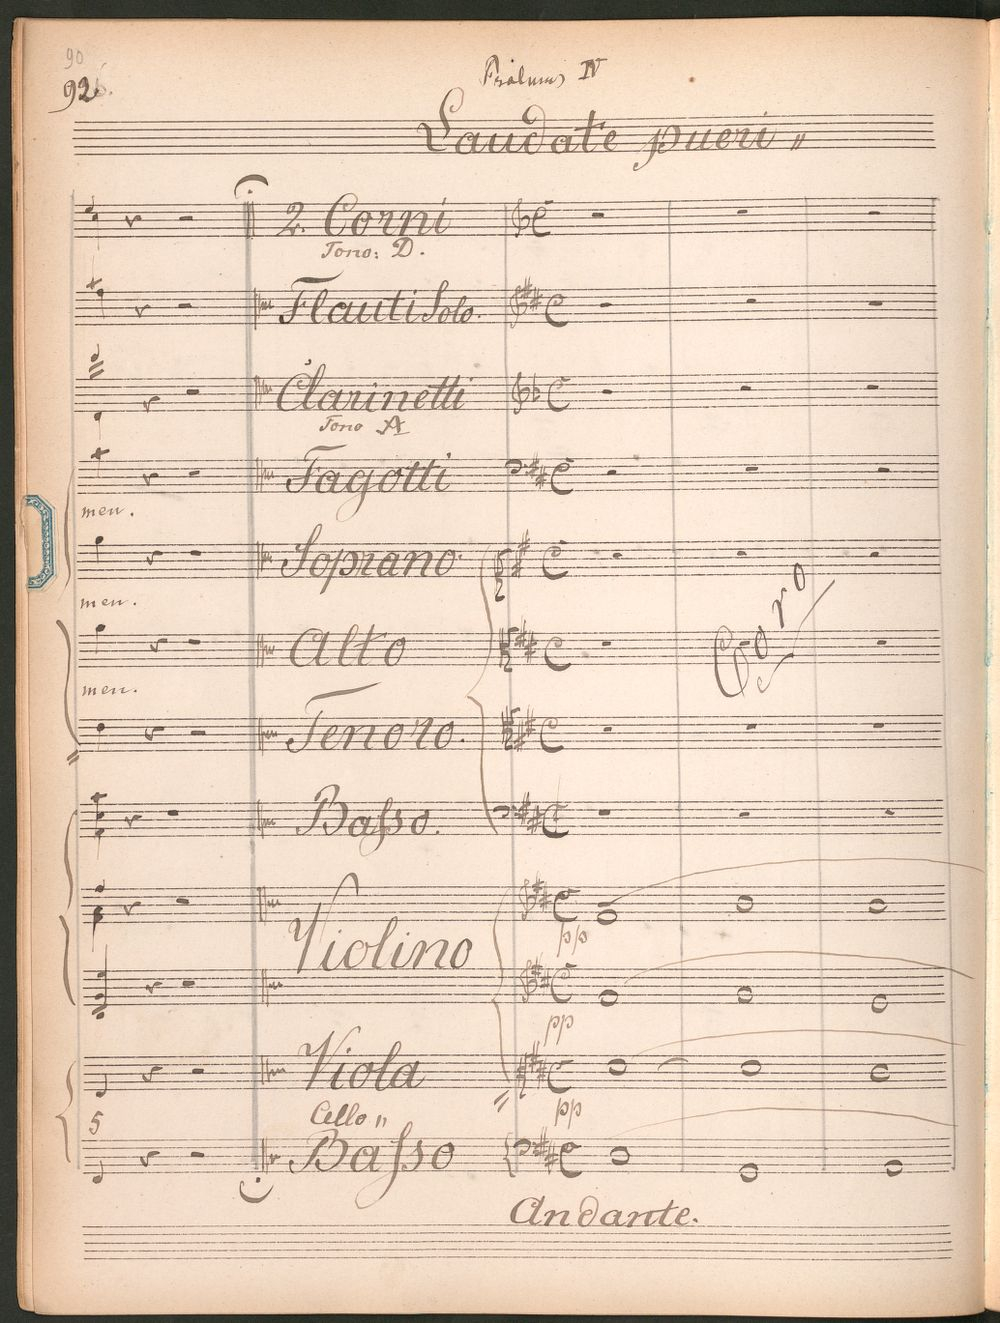 90
92
Psalmus IV
Laudate pueri
2. Corni
Tono: D.
Flauti Solo.
Clarinetti
Tono A
Fagotti
men.
Soprano
men.
Alto
Coro
men.
Tenoro.
Basso.
Violino
pp
pp
Viola
pp
Cello
5
Basso
Andante.